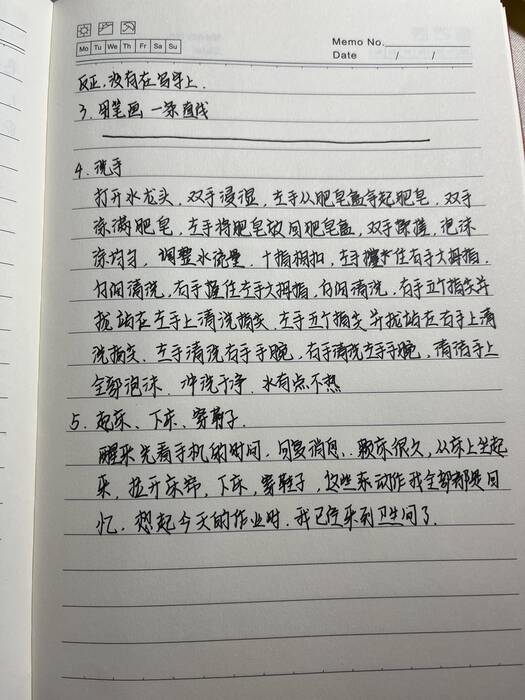 Mo Tu We Th Fr Sa Su
Memo No.
Date / /
反正,没有在写字上.
3. 用笔画一条直线
4. 洗手
打开水龙头,双手浸湿,左手从肥皂盒拿起肥皂,双手
涂满肥皂,左手将肥皂放回肥皂盒,双手揉搓,泡沫
涂均匀,调整水流量.十指相扣,左手握住右手大拇指.
向间清洗,右手握住左手大拇指,向间清洗,右手五个指尖并
拢站在左手上清洗指尖.左手五个指尖并拢站在右手上清
洗指尖.左手清洗右手手腕,右手清洗左手手腕,清洁手上
全部泡沫.冲洗干净.水有点不热
5. 起床、下床、穿鞋子.
醒来先看手机的时间.回复消息,赖床很久,从床上坐起
来,拉开床帘,下床,穿鞋子,这些来动作我全部都是回
忆.想起今天的作业时.我已经来到卫生间了.